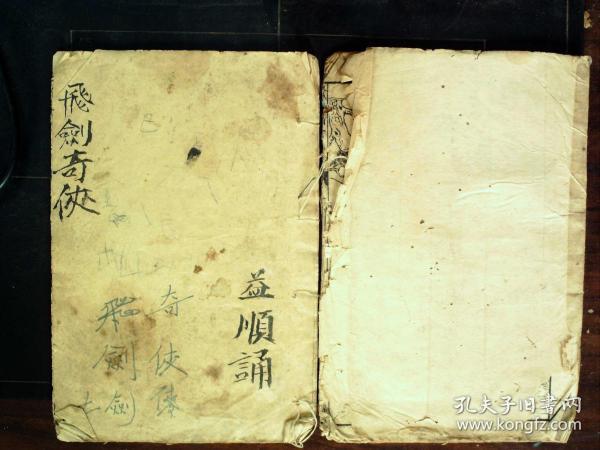 飛劍奇俠
益順誦
奇俠
飛劍
劍
孔夫子旧书网
www.kongfz.com